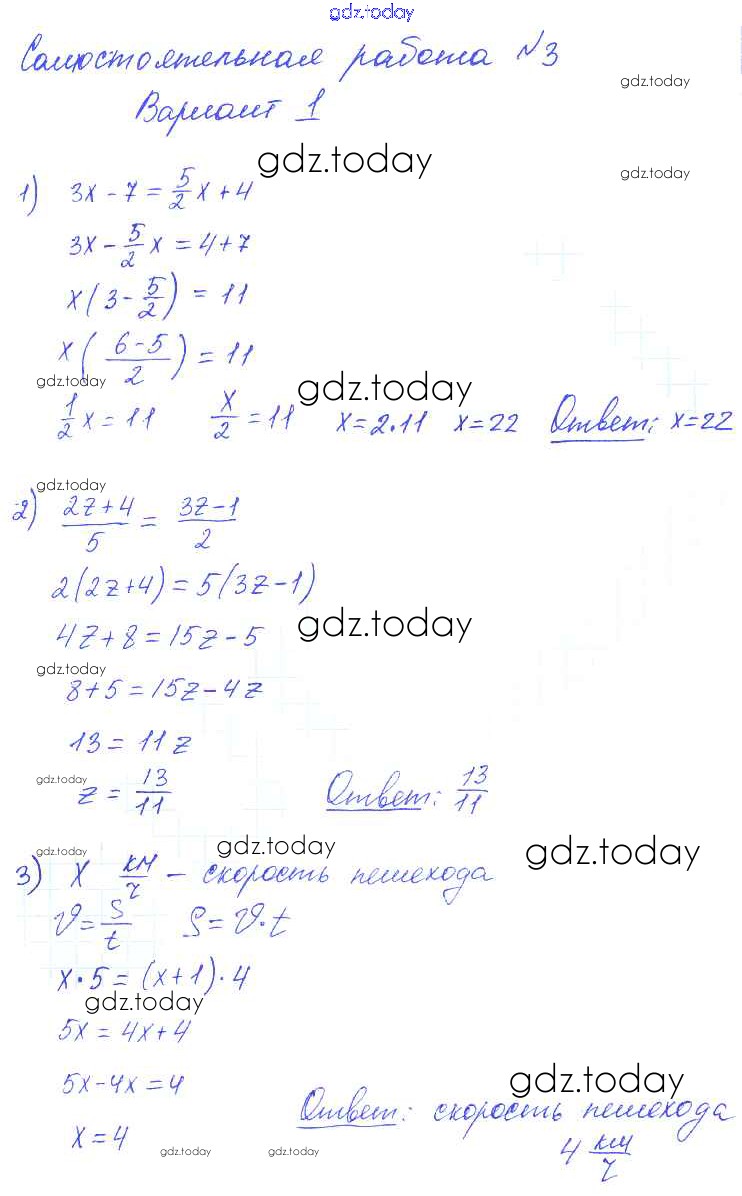 gdz.today
Самостоятельная работа №3
gdz.today
Вариант 1
gdz.today
gdz.today
1) 3x - 7 = 5/2 x + 4
3x - 5/2 x = 4 + 7
x(3 - 5/2) = 11
x((6-5)/2) = 11
gdz.today
gdz.today
1/2 x = 11 x/2 = 11 x = 2·11 x = 22 Ответ: x = 22
gdz.today
2) (2z+4)/5 = (3z-1)/2
2(2z+4) = 5(3z-1)
4z + 8 = 15z - 5
gdz.today
gdz.today
8 + 5 = 15z - 4z
13 = 11z
gdz.today
z = 13/11 Ответ: 13/11
gdz.today
gdz.today
gdz.today
3) x км/ч - скорость пешехода
υ = S/t S = υ·t
x·5 = (x+1)·4
gdz.today
5x = 4x + 4
5x - 4x = 4
gdz.today
Ответ: скорость пешехода
x = 4
4 км/ч
gdz.today
gdz.today